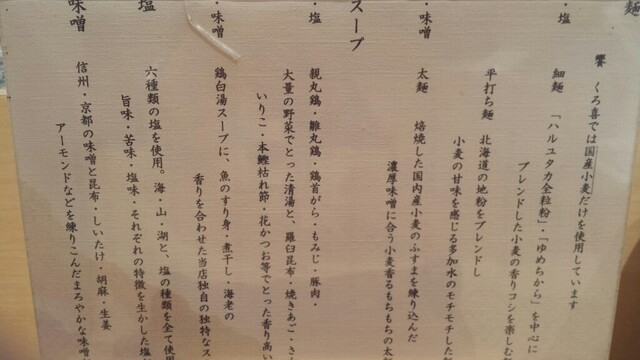 麺
饗 くろ喜では国産小麦だけを使用しています
・塩
細麺 「ハルユタカ全粒粉」・「ゆめちから」を中心に
ブレンドした小麦の香りコシを楽しむ
平打ち麺 北海道の地粉をブレンドし
小麦の甘味を感じる多加水のモチモチした
・味噌
太麺 焙焼した国内産小麦のふすまを練り込んだ
濃厚味噌に合う小麦香るもちもちの太
スープ
・塩
親丸鶏・雛丸鶏・鶏首がら・もみじ・豚肉・
大量の野菜でとった清湯と、羅臼昆布・焼きあご・さ
いりこ・本鰹枯れ節・花かつお等でとった香り高い
・味噌
鶏白湯スープに、魚のすり身・煮干し・海老の
香りを合わせた当店独自の独特なス
塩
六種類の塩を使用。海・山・湖と、塩の種類を全て使用
旨味・苦味・塩味・それぞれの特徴を生かした塩
味噌
信州・京都の味噌と昆布・しいたけ・胡麻・生姜
アーモンドなどを練りこんだまろやかな味噌